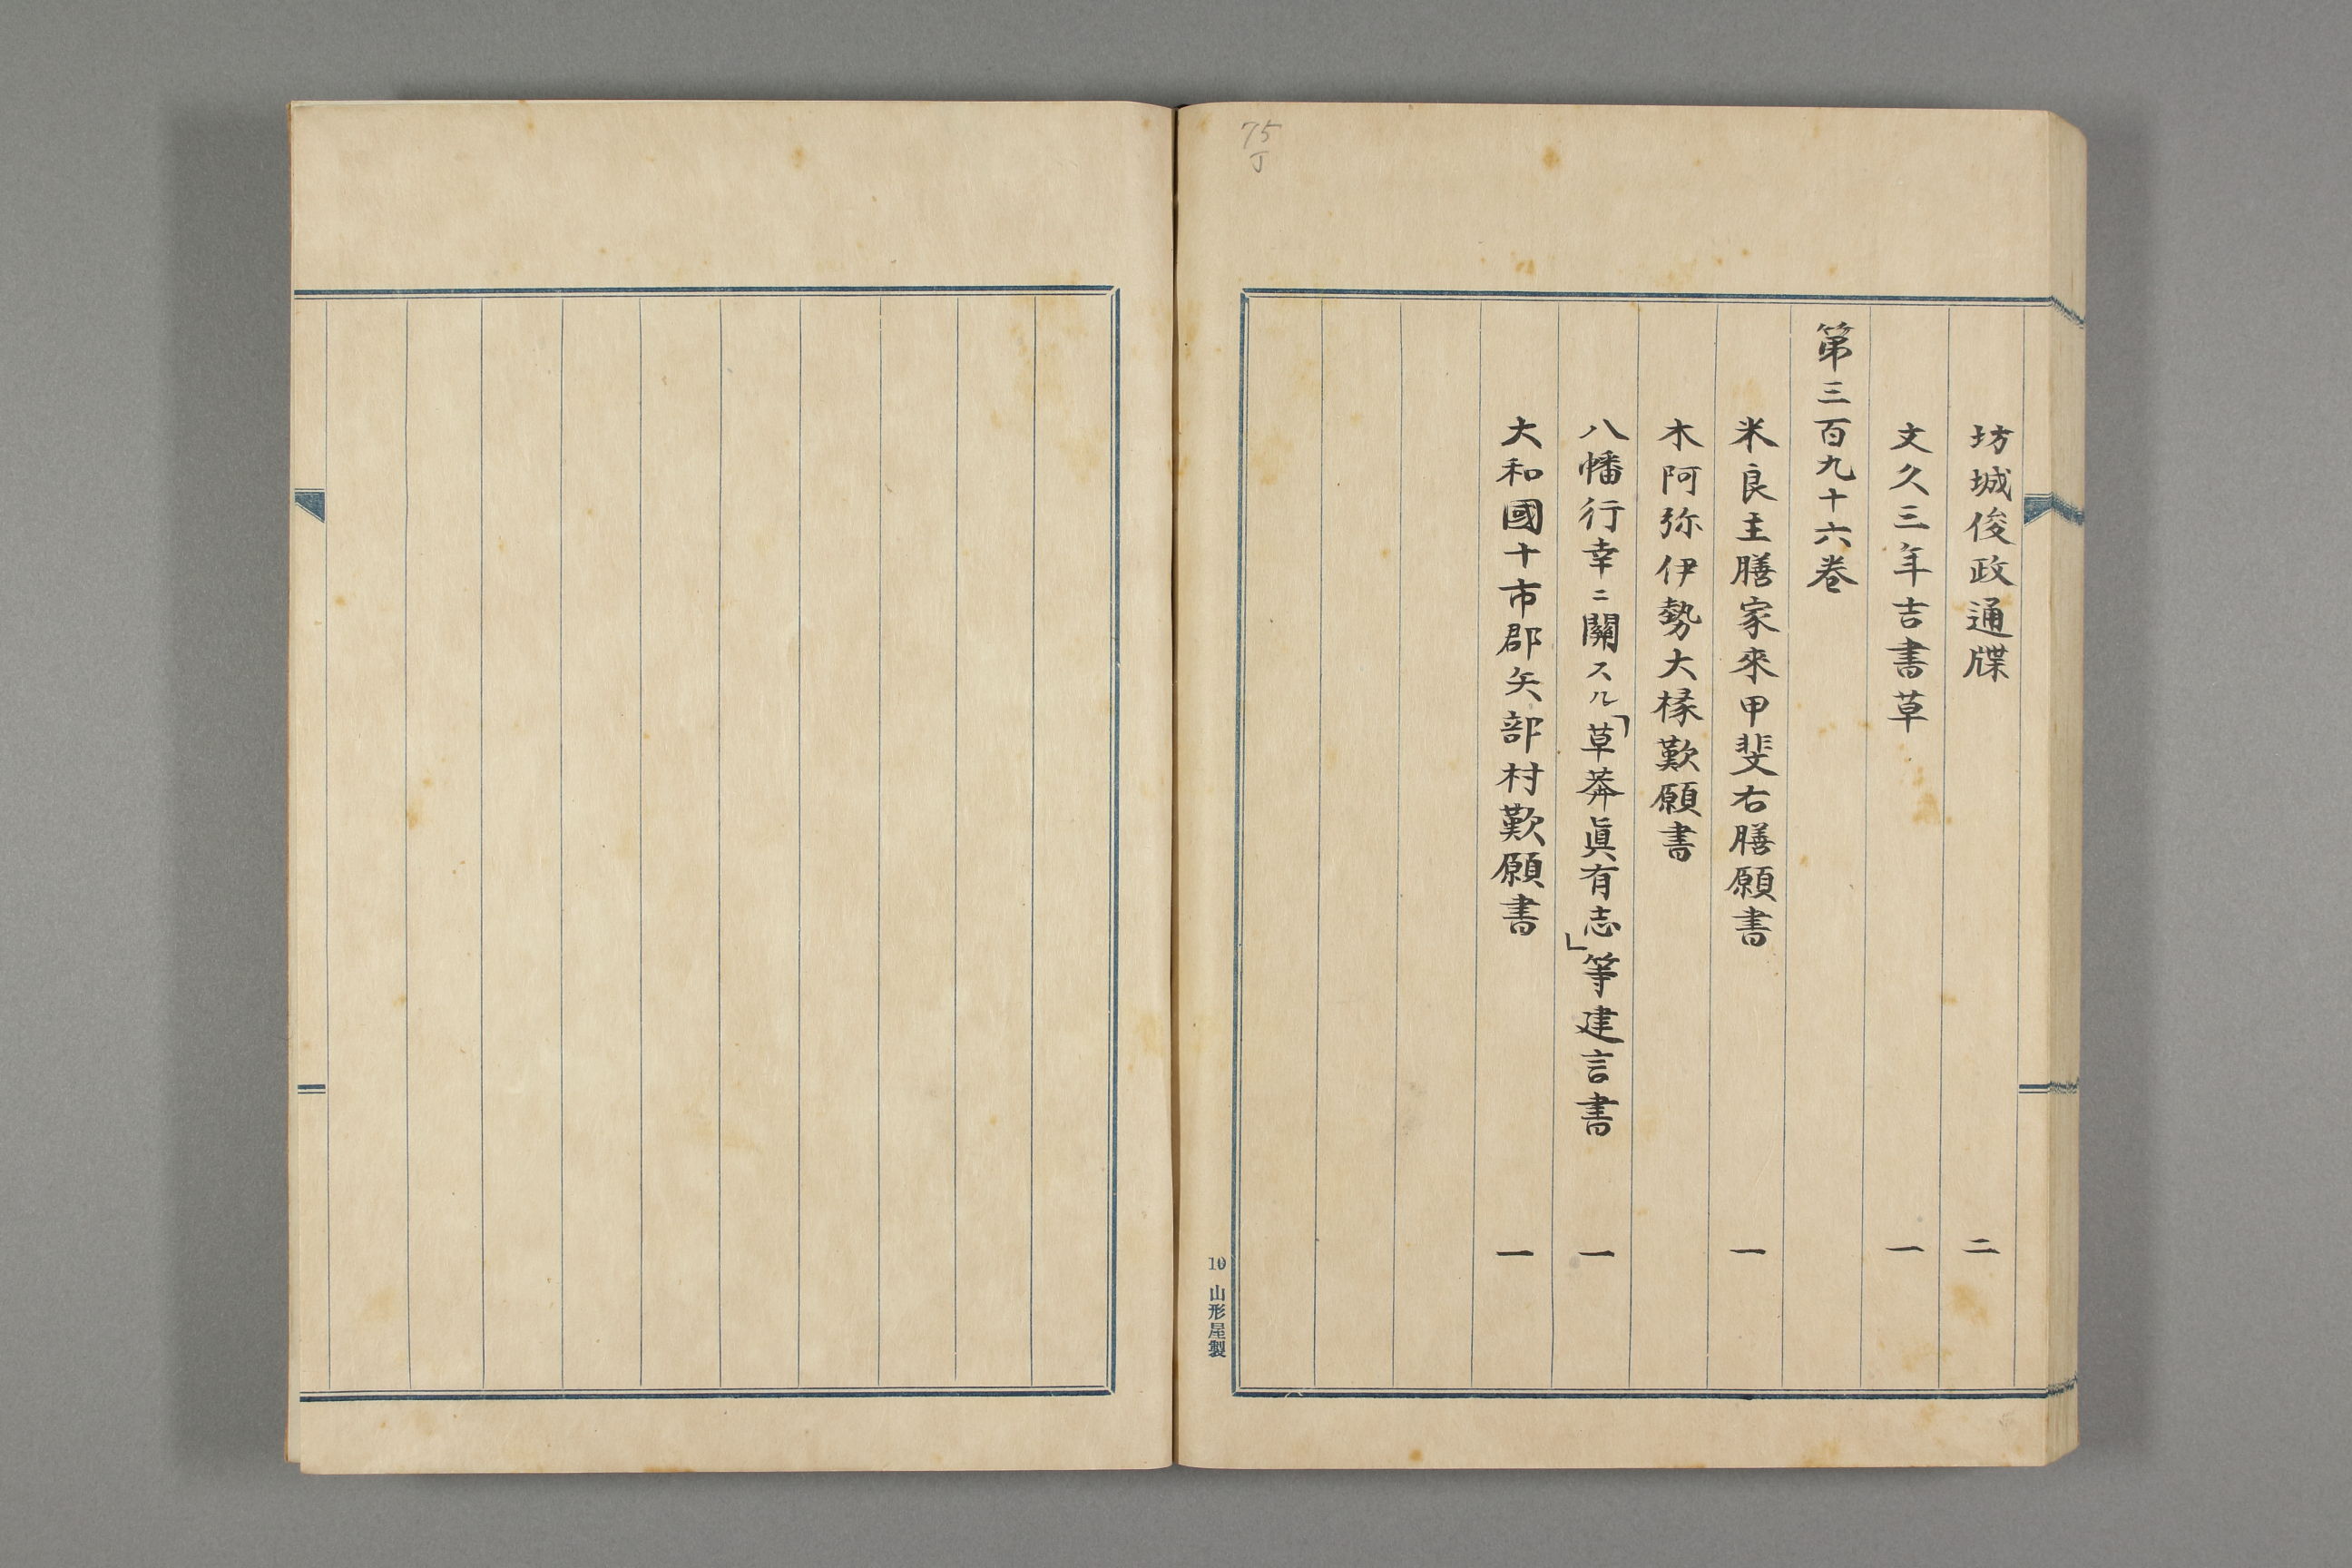 坊城俊政通牒 二
文久三年吉書草 一
第三百九十六卷
米良主膳家來甲斐右膳願書 一
木阿弥伊勢大椽歎願書
八幡行幸ニ關スル「草莾眞有志」等建言書 一
大和國十市郡矢部村歎願書 一
75丁
10 山形屋製